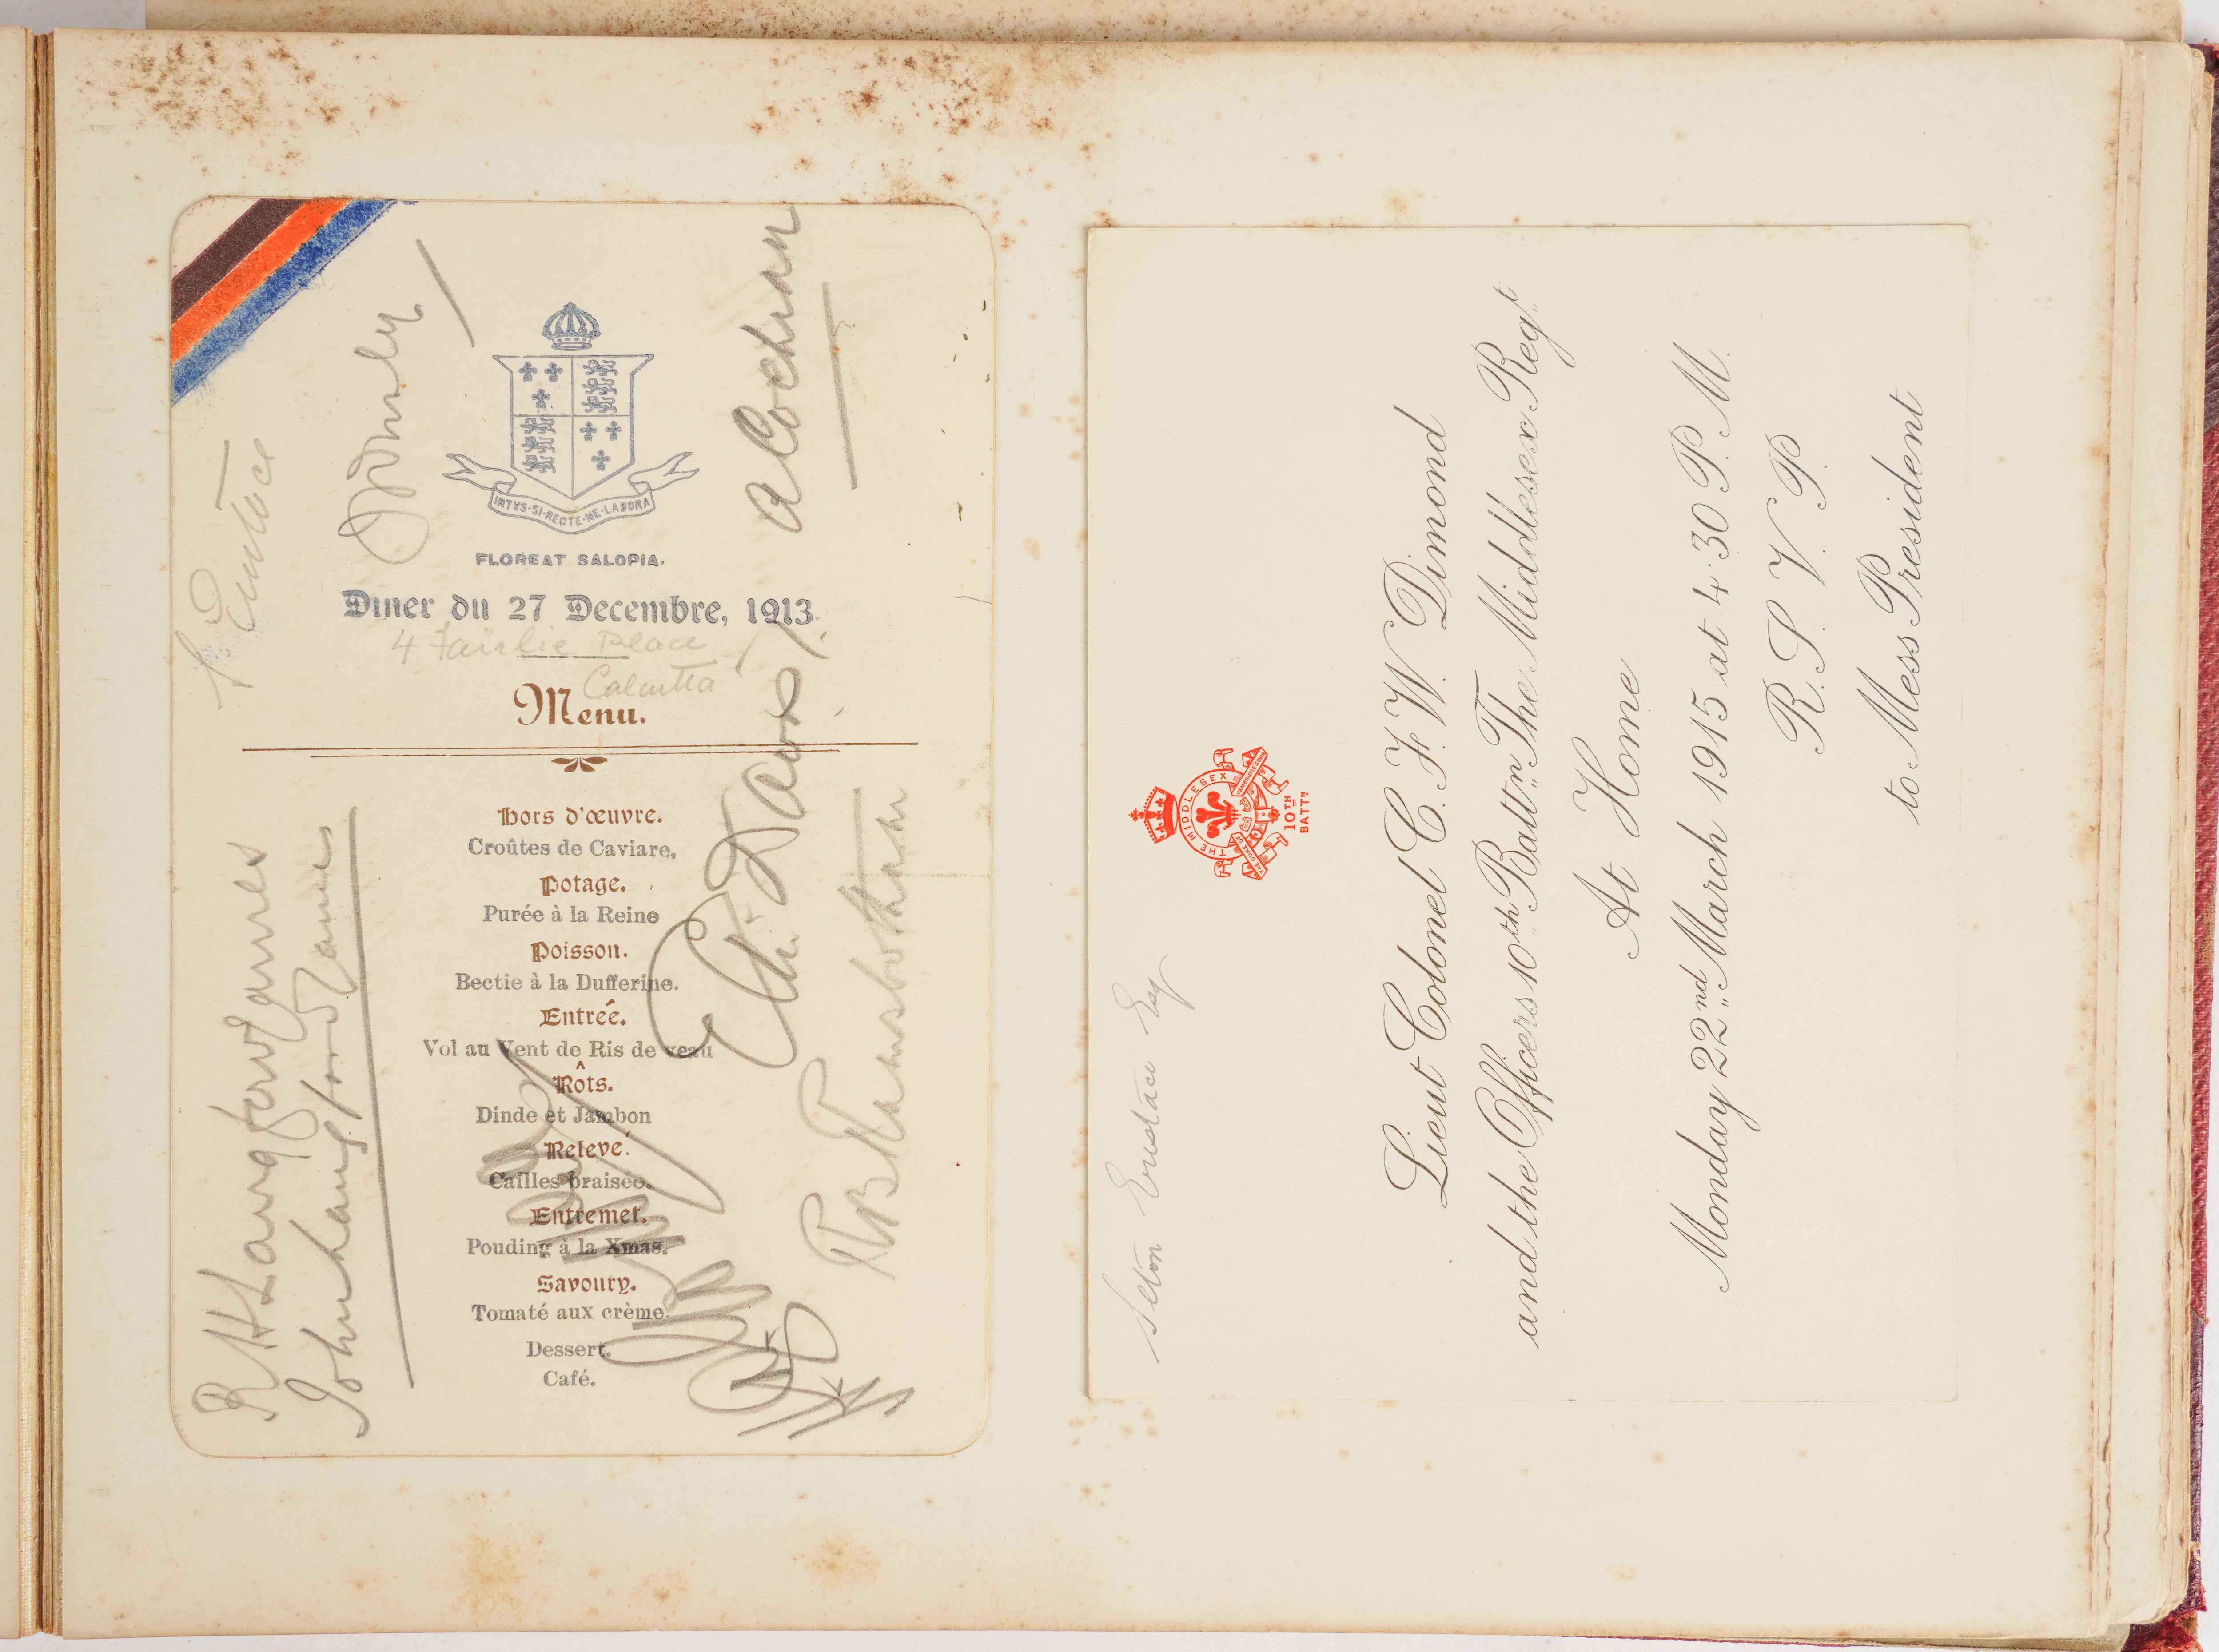 INTVS·SI·RECTE·NE·LABORA
FLOREAT SALOPIA.
Diner du 27 Decembre, 1913.
4 Fairlie Place
Calcutta
Menu.
Hors d'œuvre.
Croûtes de Caviare.
Potage.
Purée à la Reine
Poisson.
Bectie à la Dufferine.
Entreé.
Vol au Vent de Ris de veau
Rôts.
Dinde et Jambon
Relevé.
Cailles braisée.
Entremet.
Pouding à la Xmas.
Savoury.
Tomaté aux crème.
Dessert.
Café.
S Eustace
A Cochran
R H Langford James
John Langford James
R B Ramsbotham
Seton Eustace Esq.
THE MIDDLESEX
10TH
BATTN
Lieut Colonel C. F. W. Dimond
and the Officers 10th Battn The Middlesex Regt
At Home
Monday 22nd March 1915 at 4.30 P. M.
R. S. V. P.
to Mess President